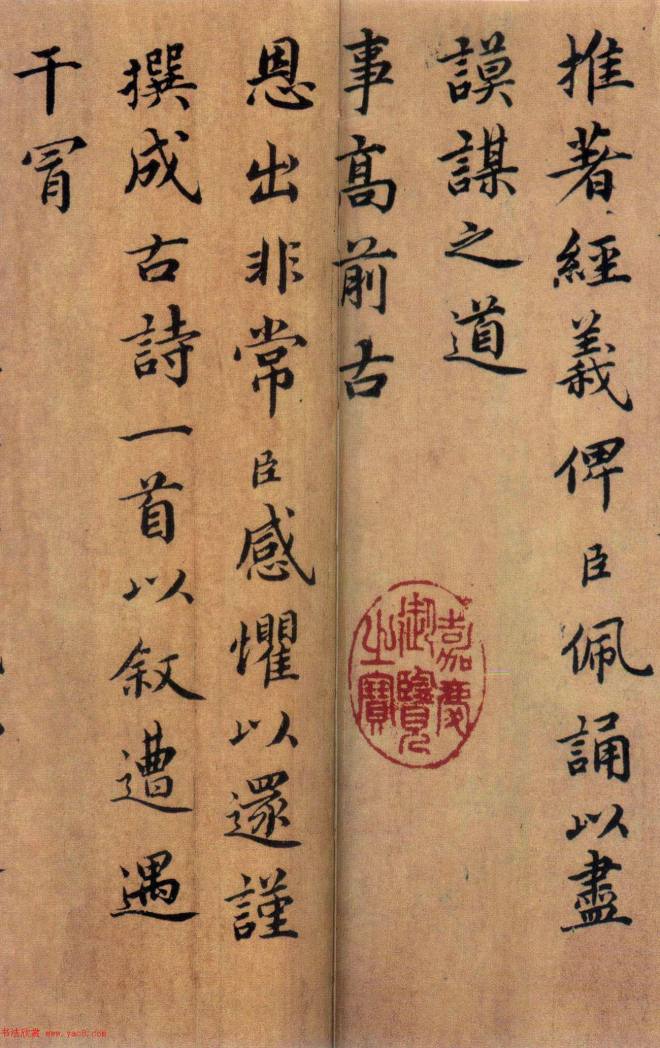 推著經義俾臣佩誦以盡
謨謀之道
事高前古
恩出非常臣感懼以還謹
撰成古詩一首以叙遭遇
干冒
嘉慶
御覽
之寶
书法欣赏 www.yac8.com